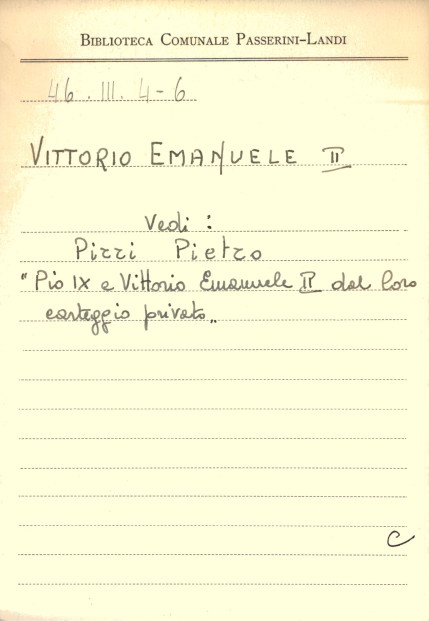 BIBLIOTECA COMUNALE PASSERINI-LANDI
46. III. 4-6
VITTORIO EMANUELE II
Vedi :
Pirri Pietro
"Pio IX e Vittorio Emanuele II dal loro
carteggio privato„
C